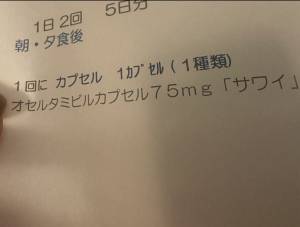 1日2回　5日分
朝・夕食後
1回に カプセル　1ｶﾌﾟｾﾙ（1種類）
オセルタミビルカプセル75mg「サワイ」